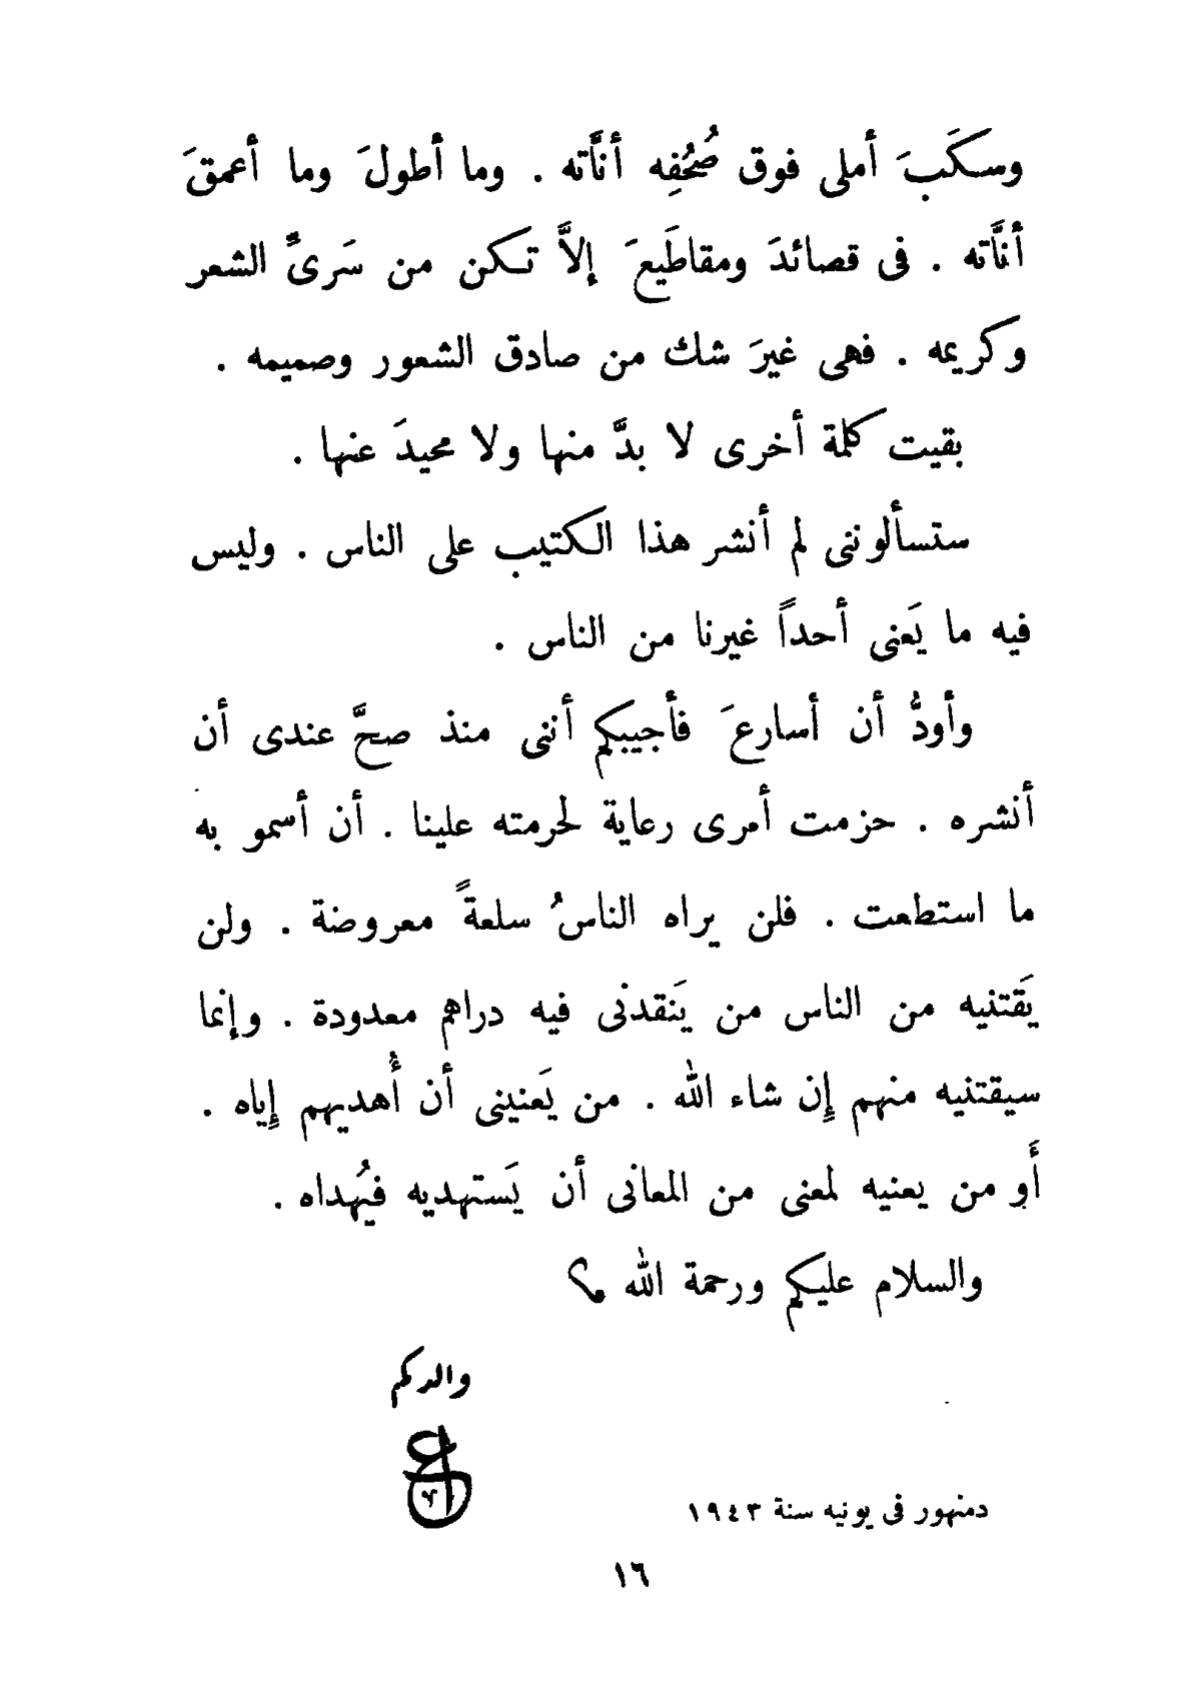 وسكَبَ أملى فوق صُحُفِه أنَّاته . وما أطولَ وما أعمقَ
أنَّاته . فى قصائدَ ومقاطَيعَ إلاَّ تكن من سَرىِّ الشعر
وكريمه . فهى غيرَ شك من صادق الشعور وصميمه .
بقيت كلمة أخرى لا بدَّ منها ولا محيدَ عنها .
ستسألوننى لم أنشر هذا الكتيب على الناس . وليس
فيه ما يَعنى أحداً غيرنا من الناس .
وأودُّ أن أسارعَ فأجيبكم أننى منذ صحَّ عندى أن
أنشره . حزمت أمرى رعاية لحرمته علينا . أن أسمو به
ما استطعت . فلن يراه الناسُ سلعةً معروضة . ولن
يَقتنيه من الناس من يَنقدنى فيه دراهم معدودة . وإنما
سيقتنيه منهم إن شاء الله . من يَعنينى أن أُهديهم إياه .
أَو من يعنيه لمعنى من المعانى أن يَستهديه فيُهداه .
والسلام عليكم ورحمة الله
والدكم
دمنهور فى يونيه سنة ١٩٤٣
١٦